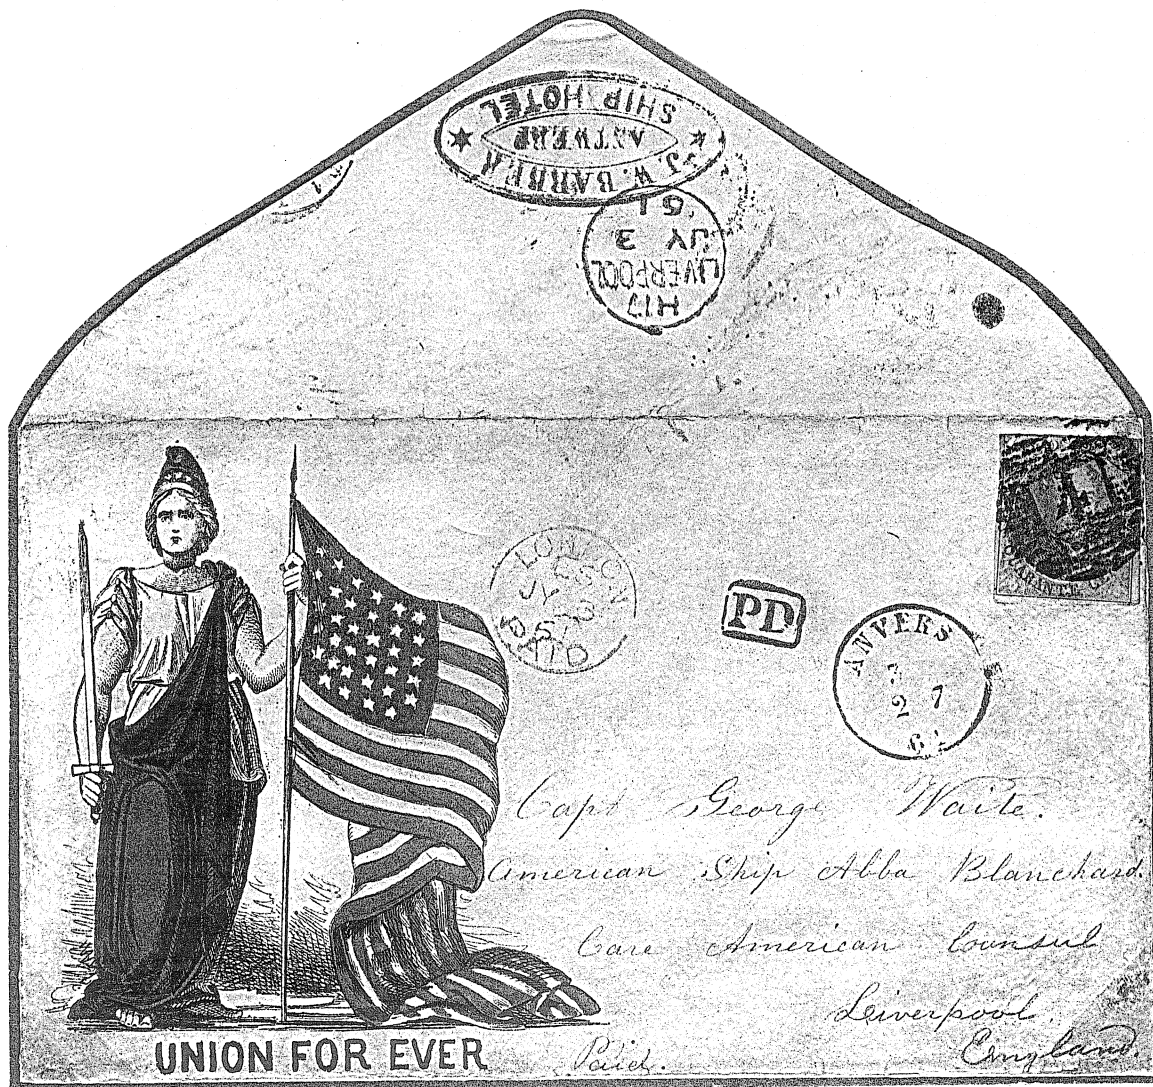 J. W. BARBER
ANTWERP
SHIP HOTEL
H17
LIVERPOOL
JY 3
61
LONDON
PAID
PD
ANVERS
3
2 7
QUARANTE
Capt George Waite.
American Ship Abba Blanchard.
Care American Counsul
Liverpool.
England.
Paid.
UNION FOR EVER